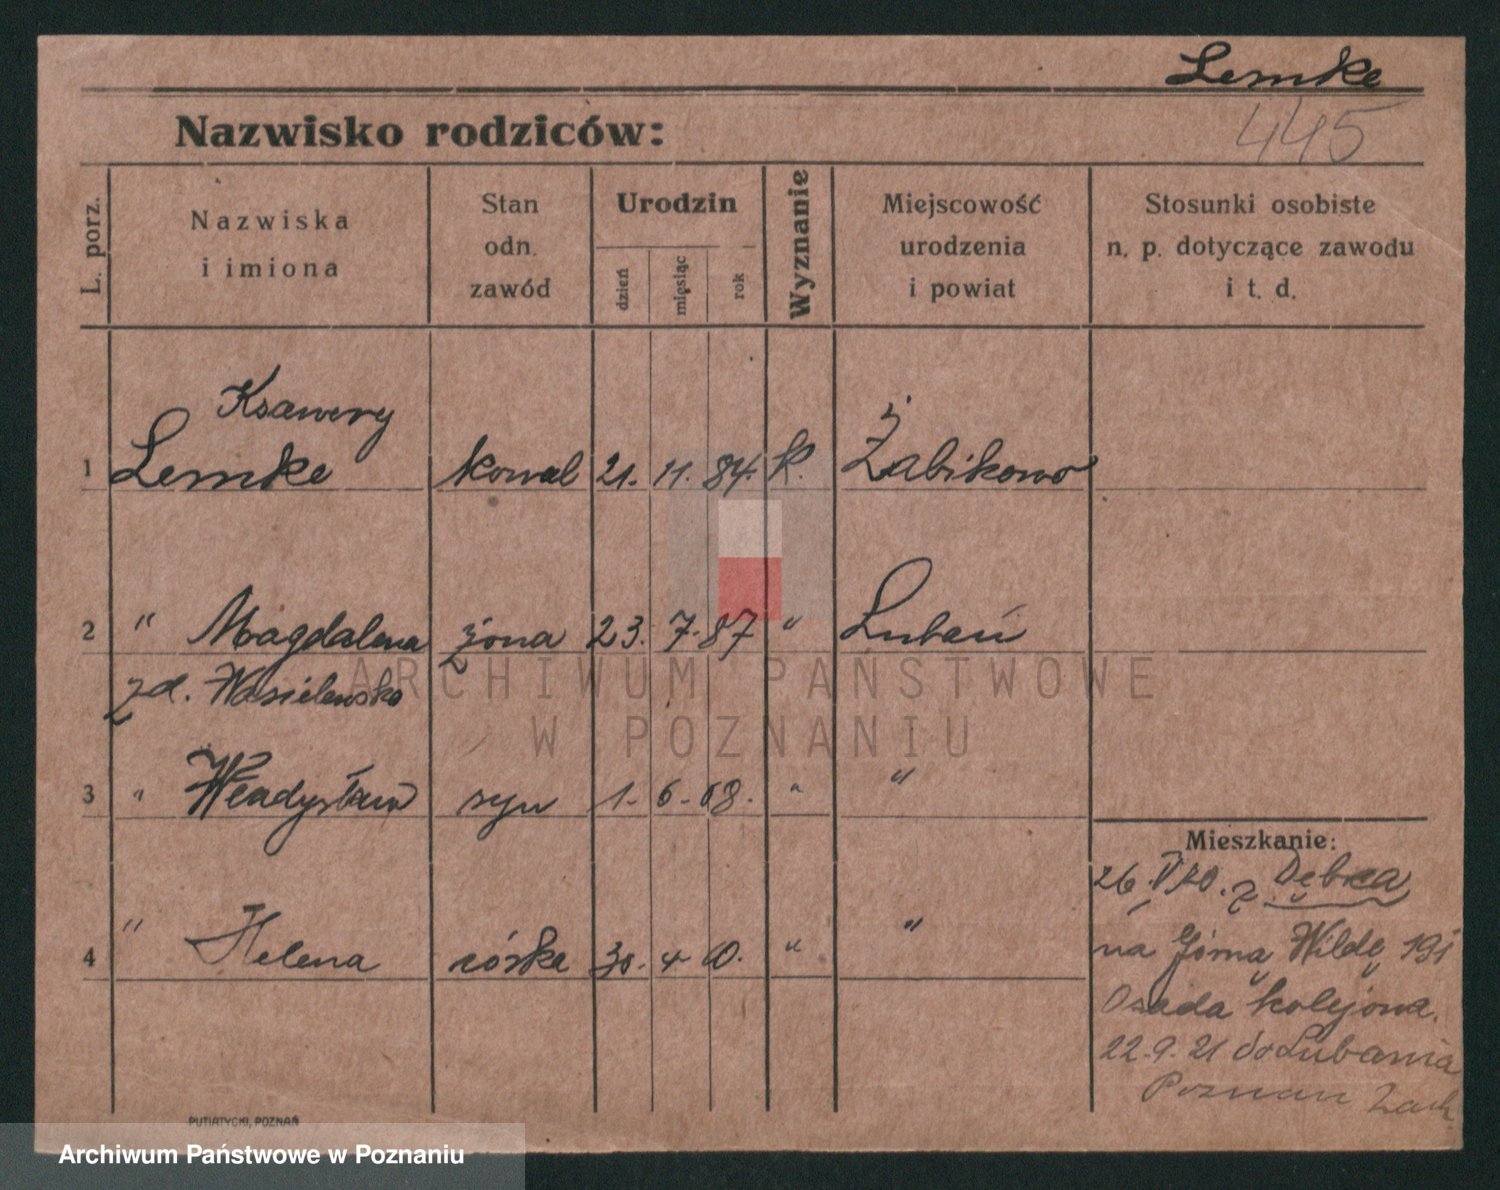 Lemke
445
Nazwisko rodziców:
L. porz.
Nazwiska
i imiona
Stan
odn.
zawód
Urodzin
dzień
miesiąc
rok
Wyznanie
Miejscowość
urodzenia
i powiat
Stosunki osobiste
n. p. dotyczące zawodu
i t. d.
Ksawery
1 Lemke kowal 21. 11. 84. k. Żabikowo
2 " Magdalena żona 23. 7. 87 " Lubań
zd. Wasielewska
3 " Władysław syn 1. 6. 08. " "
4 " Helena córka 30. 4 10. " "
Mieszkanie:
26. V 20. z Dębca
na Górną Wildę 191
Osada kolejowa.
22. 9. 21 do Lubania
Poznań Zach.
PUTIATYCKI, POZNAŃ
ARCHIWUM PAŃSTWOWE
W POZNANIU
Archiwum Państwowe w Poznaniu